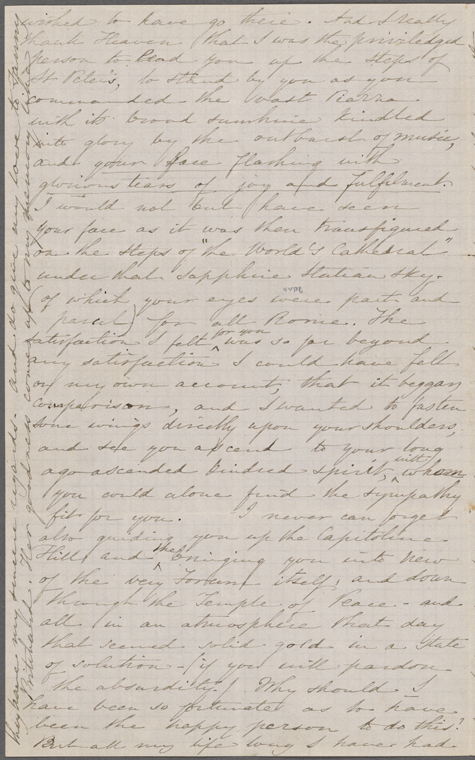 wished to have go there. And I really
thank Heaven that I was the priviledged
person to lead you up the steps of
St Peter's, to stand by you as you
commanded the vast Piazza
with its broad sunshine kindled
into glory by the outburst of music,
and your face flashing with
glorious tears of joy and fulfilment.
I would not but have seen
your face as it was then transfigured
on the steps of "the World's Cathedral"
under that sapphire Italian sky.
(of which your eyes were part and
parcel) for all Rome. The
satisfaction I felt for you was so far beyond
any satisfaction I could have felt
on my own account, that it beggars
comparison, and I wanted to fasten
some wings directly upon your shoulders,
and see you ascend to your long
ago ascended kindred spirit, with whom
you could alone find the sympathy
fit for you. I never can forget
also guiding you up the Capitoline
Hill and then bringing you into view
of the very Forum itself, and down
through the Temple of Peace - and
all in an atmosphere that day
that seemed solid gold in a state
of solution - (if you will pardon
the absurdity.) Why should I
have been so fortunate as to have
been the happy person to do this?
But all my life long I have had
my sincere regards and do give my love to